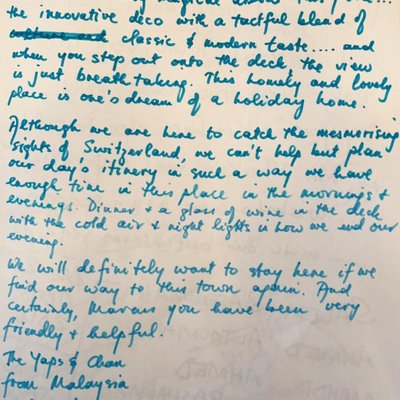 the innovative deco with a tactful blend of
classic & modern taste.... and
when you step out onto the deck, the view
is just breath taking. This homely and lovely
place is one's dream of a holiday home.
Although we are here to catch the mesmerising
sights of Switzerland, we can't help but plan
our day's itinery in such a way we have
enough time in this place in the mornings &
evenings. Dinner & a glass of wine in the deck
with the cold air & night lights is how we end our
evening.
We will definitely want to stay here if we
find our way to this town again. And
certainly, Marcus you have been very
friendly & helpful.
The Yaps & Chan
from Malaysia